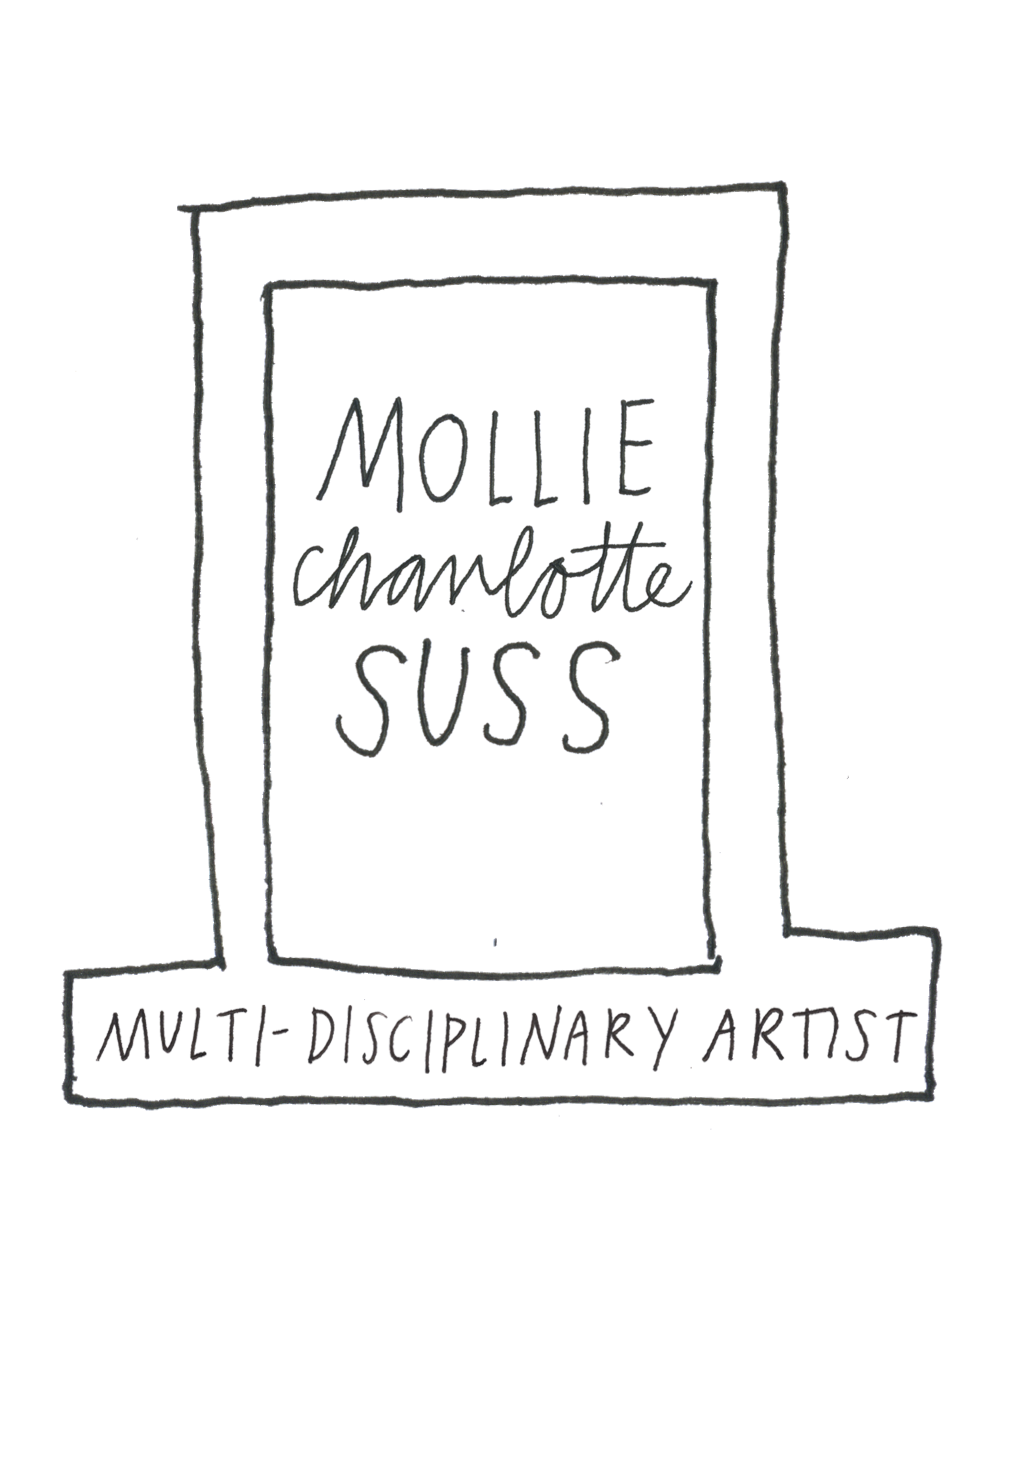 MOLLIE
charlotte
SUSS
MULTI-DISCIPLINARY ARTIST